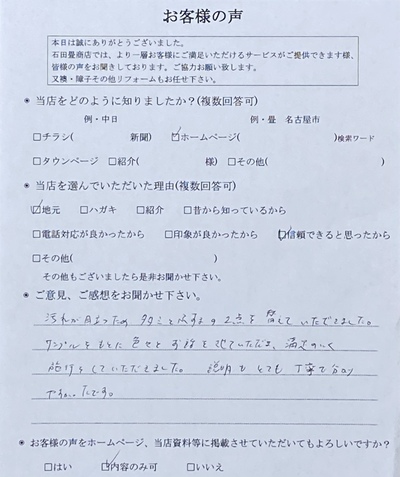 お客様の声
本日は誠にありがとうございました。
石田畳商店では、より一層お客様にご満足いただけるサービスがご提供できます様、
皆様の声をお聞きしております。ご協力お願い致します。
又襖・障子その他リフォームもお任せ下さい。
◉ 当店をどのように知りましたか?(複数回答可)
例・中日 例・畳 名古屋市
□チラシ( 新聞) ☑ホームページ( )検索ワード
□タウンページ □紹介( 様) □その他( )
◉ 当店を選んでいただいた理由(複数回答可)
☑地元 □ハガキ □紹介 □昔から知っているから
□電話対応が良かったから □印象が良かったから ☑信頼できると思ったから
□その他( )
その他もございましたら是非お聞かせ下さい。
◉ ご意見、ご感想をお聞かせ下さい。
汚れが目立つため タタミと の2点を替えていただきました。
サンプルをもとに色など お話を していただき、満足のいく
施行をしていただきました。 説明も とても 丁寧で分り
やすかったです。
◉ お客様の声をホームページ、当店資料等に掲載させていただいてもよろしいですか?
□はい ☑内容のみ可 □いいえ